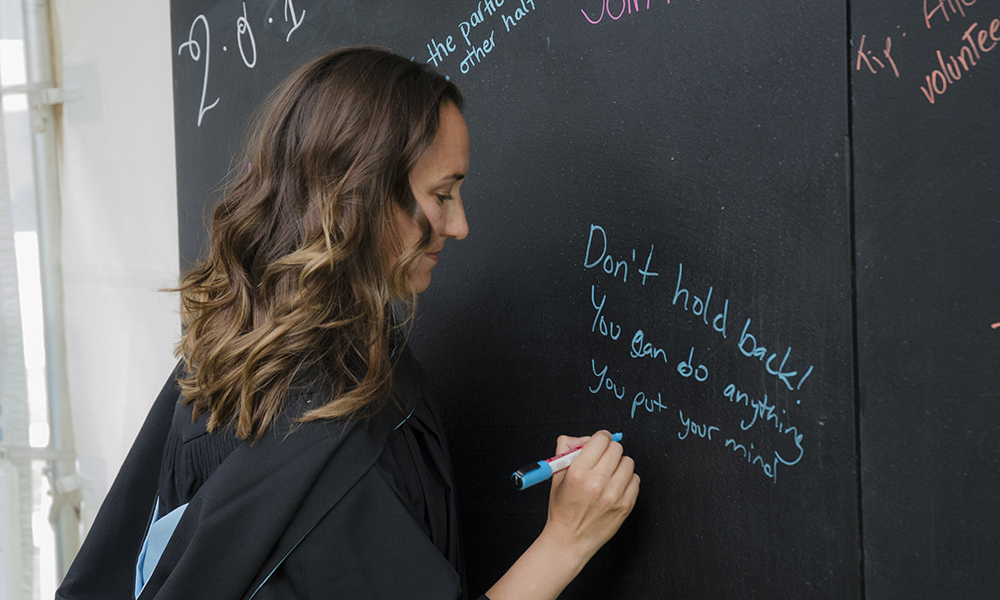 2.0.1
the partic
other half
Join
Tip:
voluntee
Don't hold back!
You can do anything
You put your mind